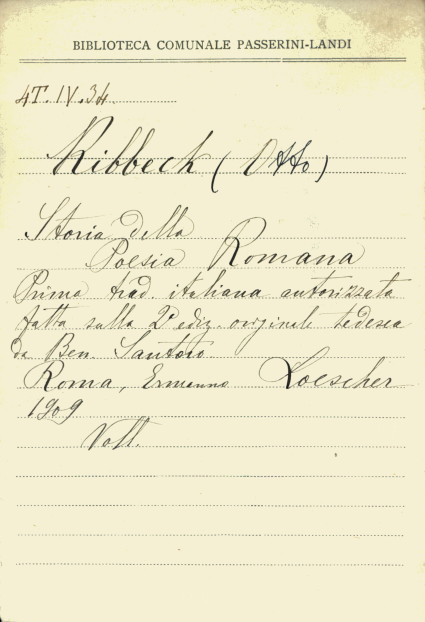 BIBLIOTECA COMUNALE PASSERINI-LANDI
4T. IV. 34
Ribbeck (Otto)
Storia della
Poesia Romana
Prima trad italiana autorizzata
fatta sulla 2ª ediz. originale tedesca
da Ben Santoro
Roma, Ermanno Loescher
1909
Voll.